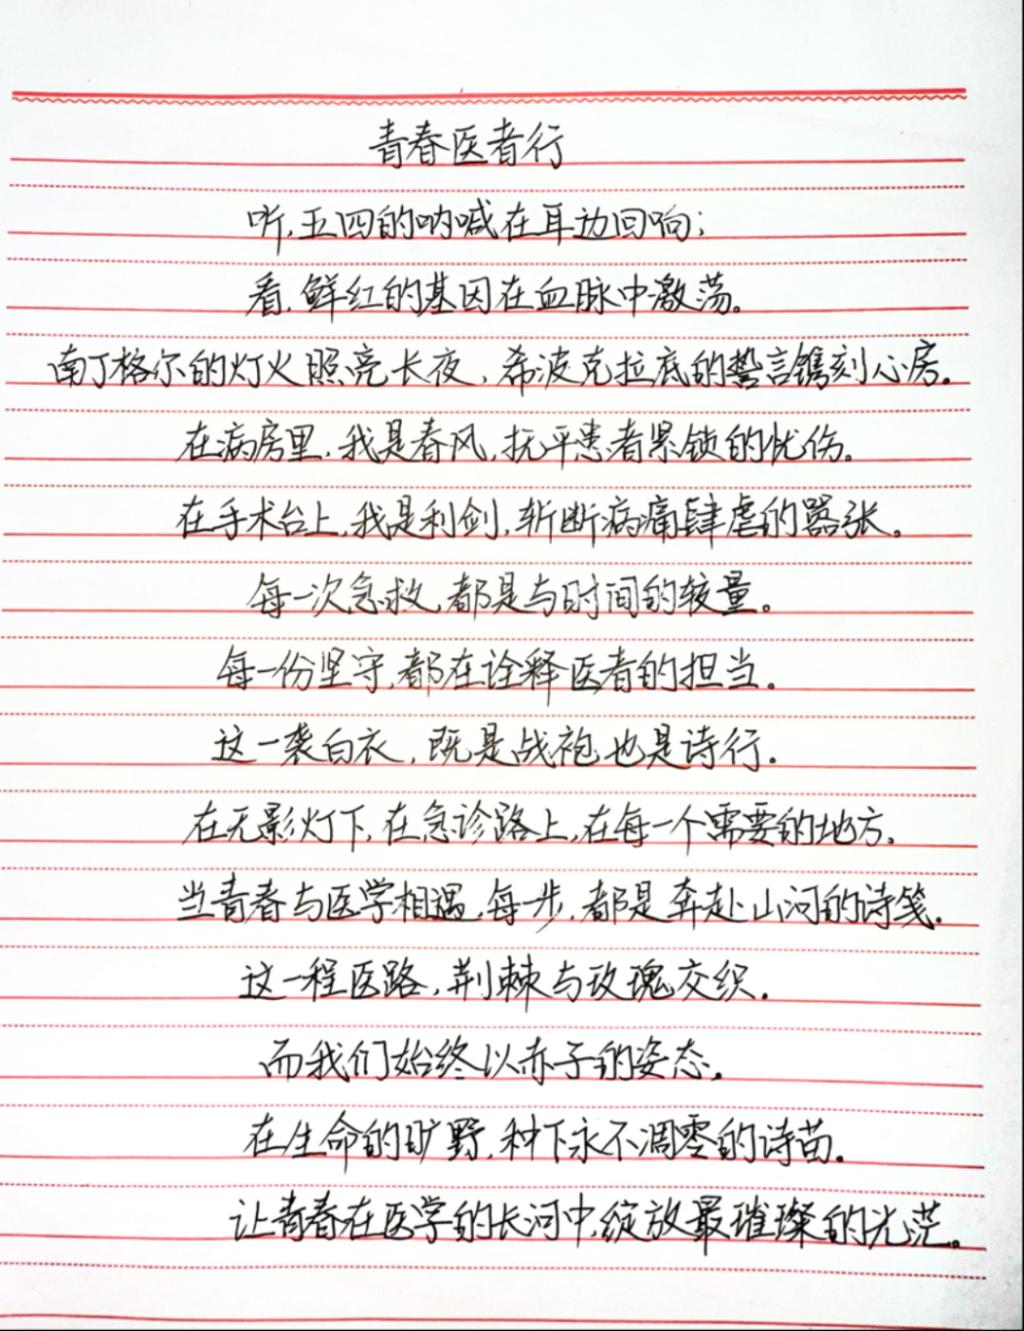 青春医者行
听,五四的呐喊在耳边回响;
看,鲜红的基因在血脉中激荡。
南丁格尔的灯火照亮长夜,希波克拉底的誓言镌刻心房。
在病房里,我是春风,抚平患者紧锁的忧伤。
在手术台上,我是利剑,斩断病痛肆虐的嚣张。
每一次急救,都是与时间的较量。
每一份坚守,都在诠释医者的担当。
这一袭白衣,既是战袍也是诗行.
在无影灯下,在急诊路上,在每一个需要的地方.
当青春与医学相遇,每一步,都是奔赴山河的诗笺.
这一程医路,荆棘与玫瑰交织.
而我们始终以赤子的姿态,
在生命的旷野,种下永不凋零的诗苗.
让青春在医学的长河中,绽放最璀璨的光茫。